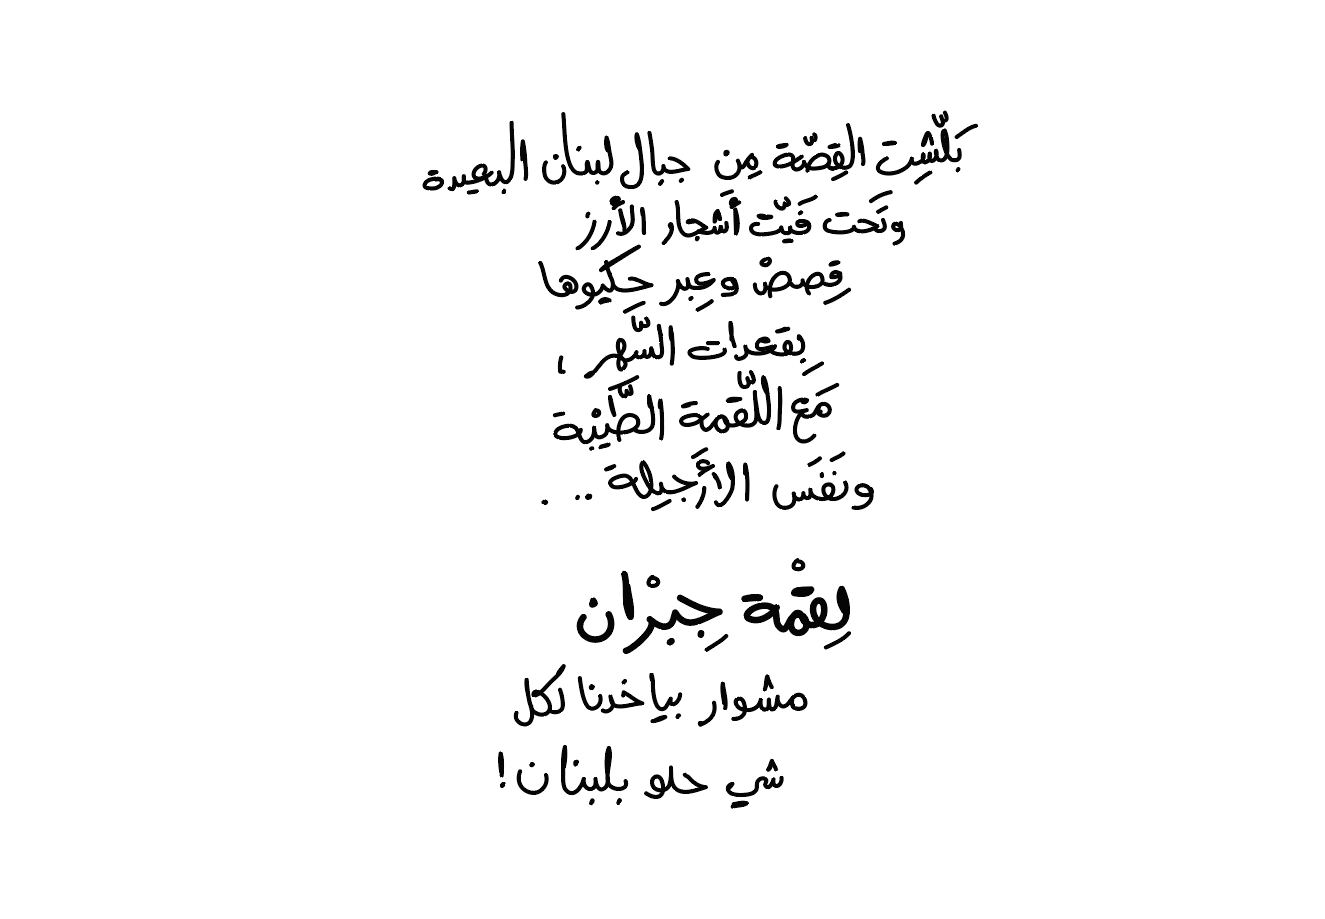 بَلَّشِت القِصّة مِن جبال لبنان البعيدة
ونَحت فَيّت أَشجار الأرز
قِصصْ وعِبر حِكيوها
بِقعدات السَّهر ،
مَع اللّقمة الطَّيْبة
ونَفَس الأَرجيلة ...
لِقمْة جِبْران
مشوار بياخدنا لكل
شي حلو بلبنان !